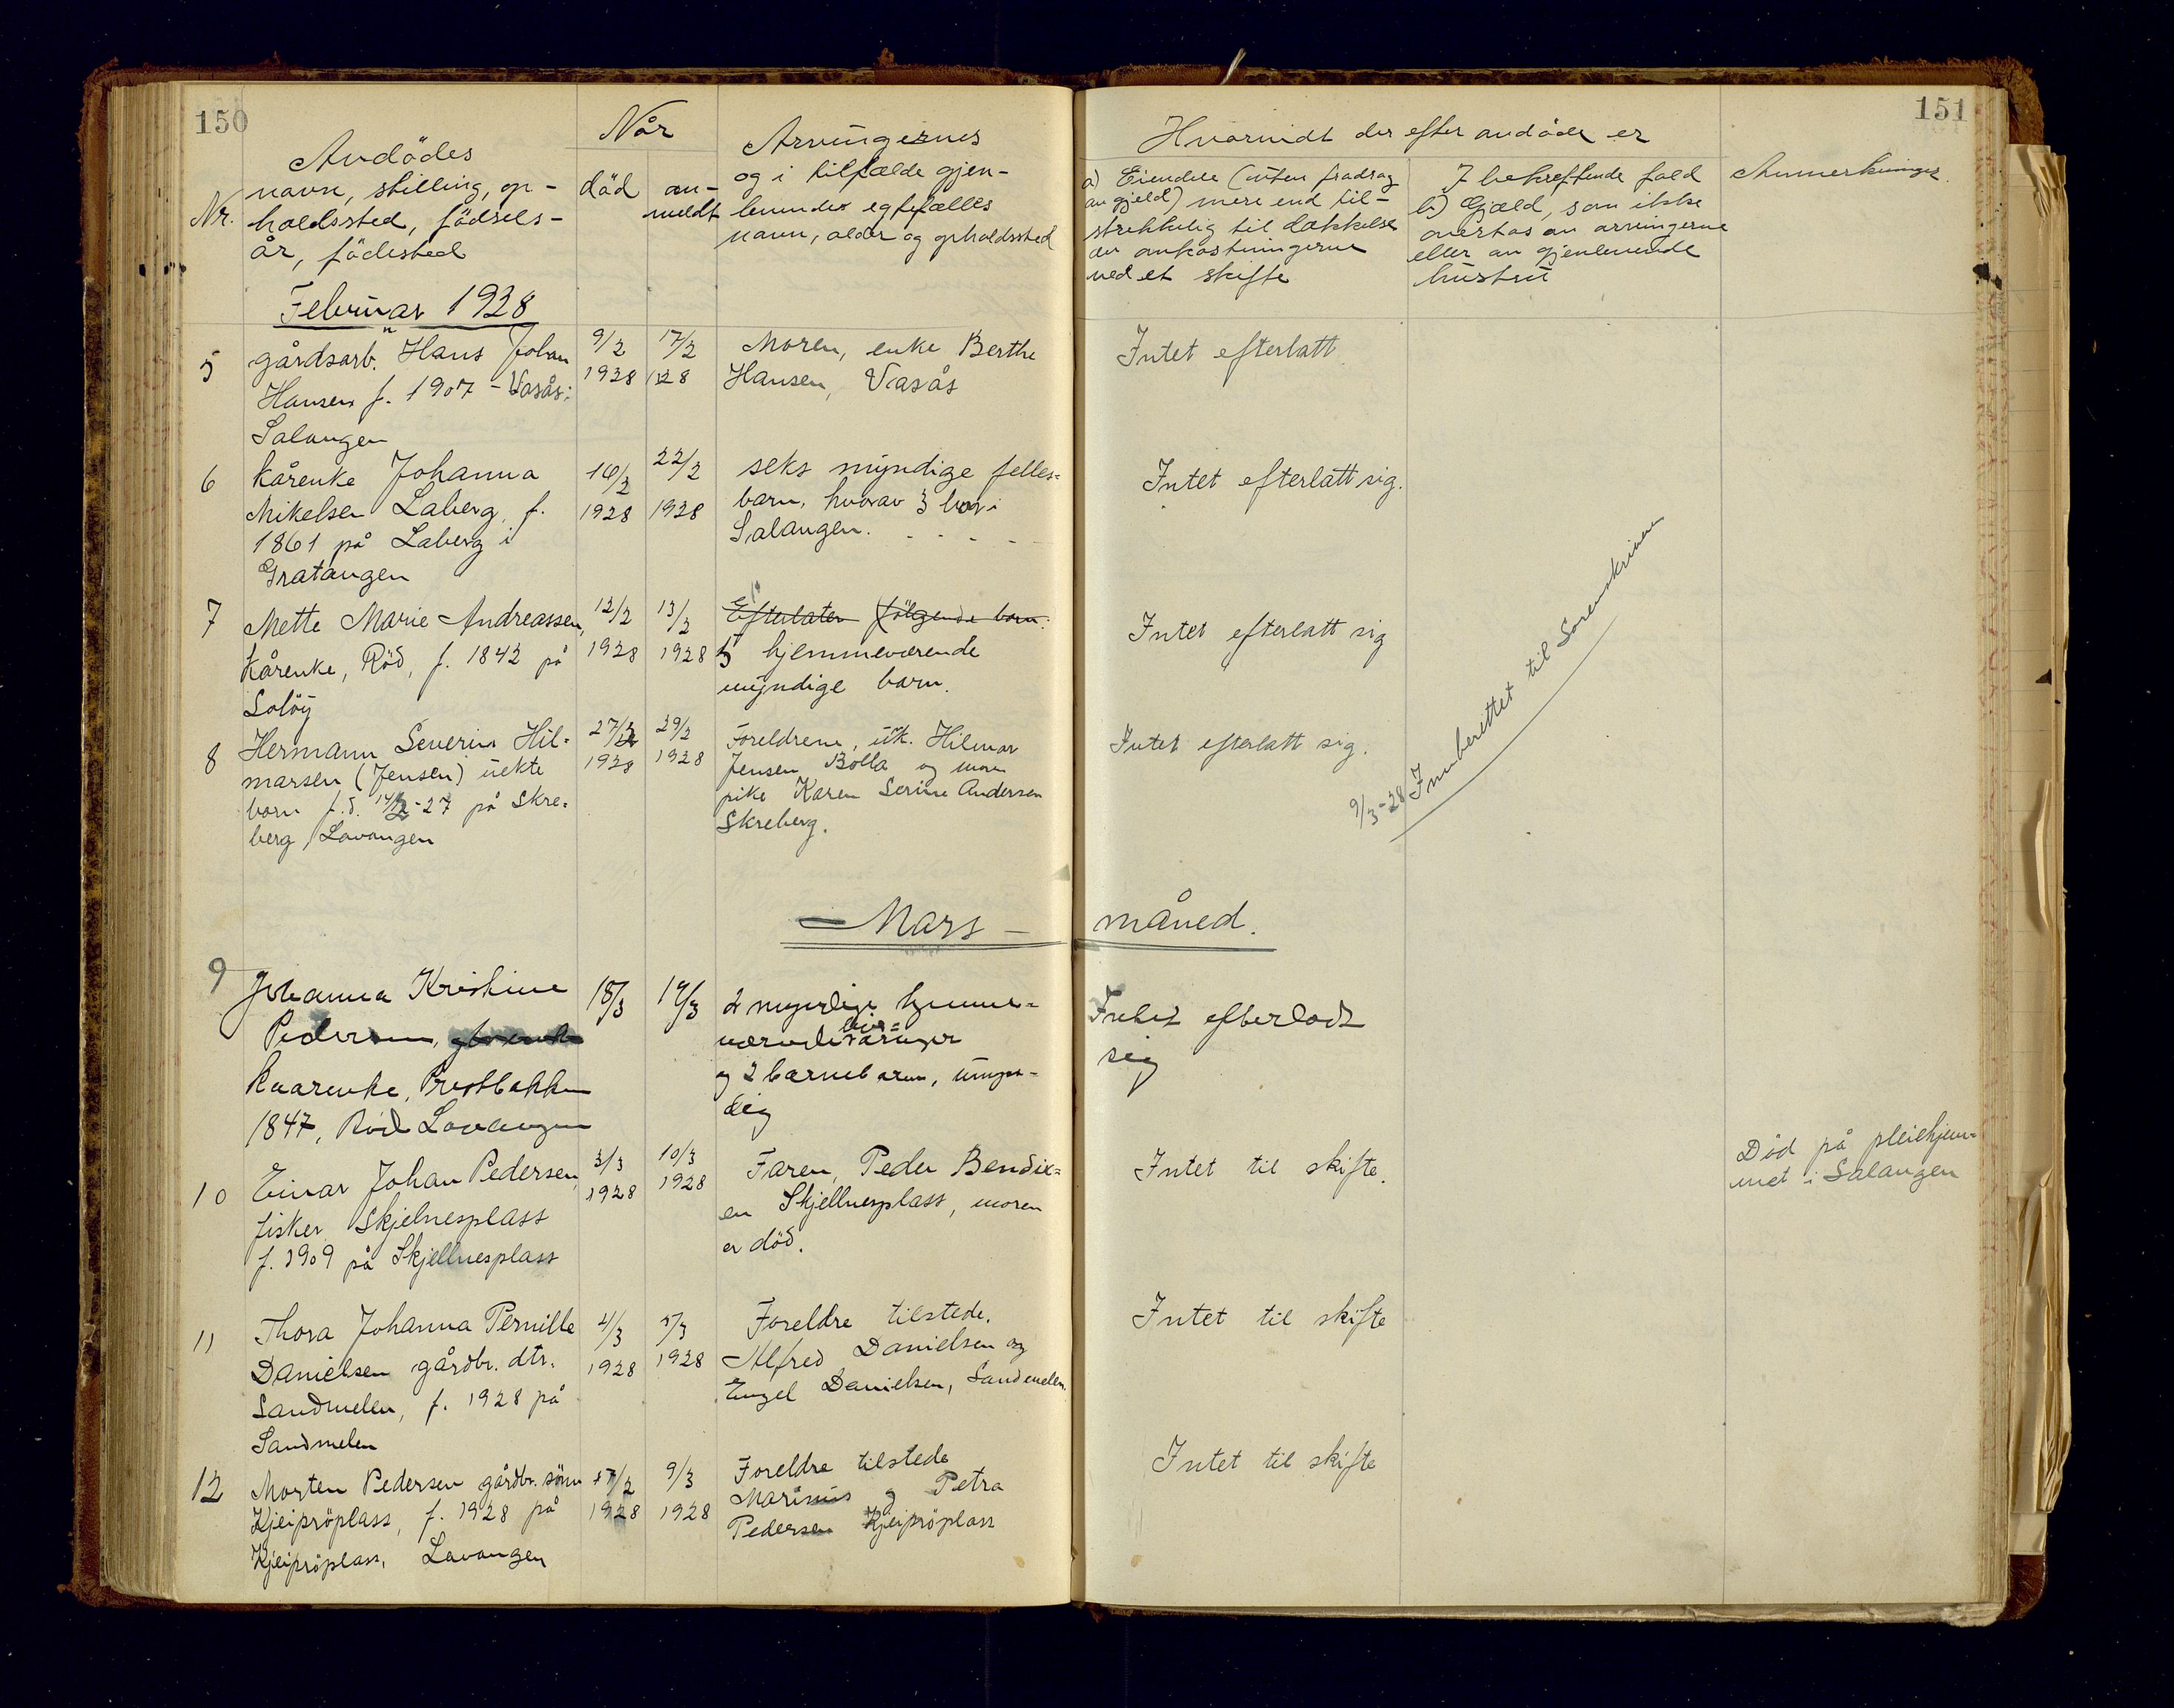 150
Nr.
Avdödes
navn, stilling, op-
holdssted, födsels-
år, födested
Når
död an-
meldt
Arvingernes
og i tilfælde gjen-
levendes egtefælles
navn, alder og opholdssted
Februar 1928
5 gårdsarb. Hans Johan
Hansen f. 1907 - Vasås:
Salangen
9/2
1928
17/2
1928
Moren, enke Berthe
Hansen, Vasås
6 kårenke Johanna
Mikelsen Laberg, f.
1861 på Laberg i
Gratangen
16/2
1928
22/2
1928
seks myndige felles=
barn, hvorav 3 bor i
Salangen.
7 Mette Marie Andreassen,
kårenke, Röd, f. 1842 på
Solöy
12/2
1928
13/2
1928
Efterlater følgende barn:
5 hjemmeværende
myndige barn.
8 Hermann Severin Hil-
marsen (Jensen) uekte
barn f.d. 14/2-27 på Skre-
berg, Lavangen
27/2
1928
29/2
1928
Foreldrene, uk. Hilmar
Jensen Bolla og moren
pike Karen Serine Andersen
Skreberg.
- Mars -
9 Johanna Kristine
Pedersen,
kaarenke, Prestbakken
1847, Röd Lavangen
18/3
19/3
2 myndige hjemme=
værende livs=arvinger
og 2 barnebarn, umyn-
dig
10 Einar Johan Pedersen,
fisker Skjelnesplass
f. 1909 på Skjellnesplass
3/3
1928
10/3
1928
Faren, Peder Bendix=
en Skjellnesplass, moren
er död.
11 Thora Johanna Pernille
Danielsen gårdbr. dtr.
Sandmelen, f. 1928 på
Sandmelen
4/3
1928
5/3
1928
Foreldre tilstede.
Alfred Danielsen og
Engel Danielsen, Sandmelen.
12 Morten Pedersen gårdbr. sönn
Kjeipröplass, f. 1928 på
Kjeipröplass, Lavangen
1928
9/3
1928
Foreldre tilstede
Marinius og Petra
Pedersen Kjeipröplass
151
Hvorvidt der efter avdöde er
a) Eiendele (uten fradrag
av gjeld) mere end til-
strekkelig til dækkelse
av omkostningerne
ved et skifte
I bekreftende fald
b) Gjæld, som ikke
overtas av arvingerne
eller av gjenlevende
hustru
Anmerkninger
Intet efterlatt
Intet efterlatt sig.
Intet efterlatt sig
Intet efterlatt sig.
9/3-28 Innberettet til Sorenskriveren
måned.
Intet efterladt
sig
Intet til skifte.
Död på pleiehjem=
met i Salangen
Intet til skifte
Intet til skifte